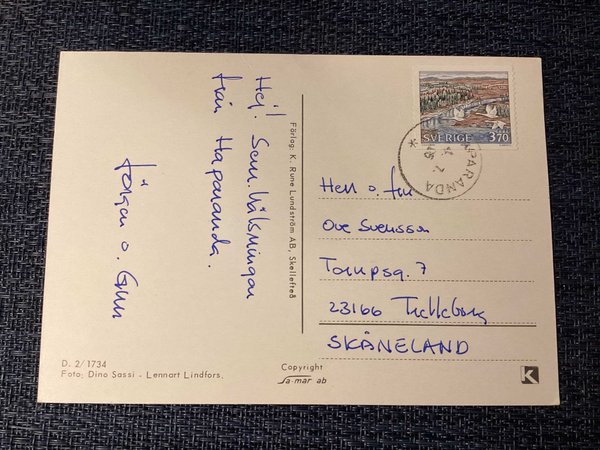 Hej! Sem.hälsningar
från Haparanda.
Jörgen o. Gun
Förlag: K. Rune Lundström AB, Skellefteå
SVERIGE 370
HAPARANDA
Herr o. fru
Ove Svensson
Tompsg. 7
23166 Trelleborg
SKÅNELAND
D. 2/1734
Foto: Dino Sassi - Lennart Lindfors.
Copyright
Sa-mar ab
K